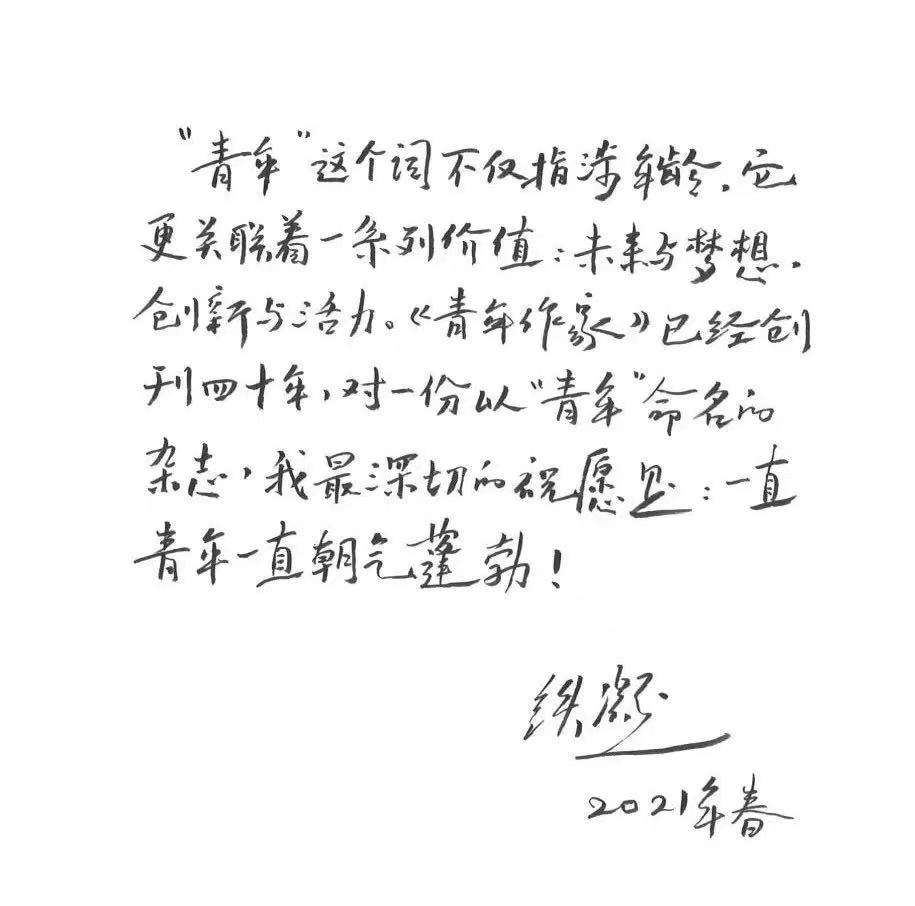 “青年”这个词不仅指涉年龄，它
更关联着一系列价值：未来与梦想，
创新与活力。《青年作家》已经创
刊四十年，对一份以“青年”命名的
杂志，我最深切的祝愿是：一直
青年一直朝气蓬勃！
铁凝
2021年春